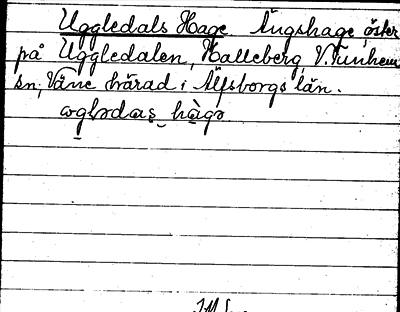 Uggledals Hage Ängshage öster
på Uggledalen, Halleberg, V. Tunhem
sn, Väne härad i Älfsborgs län.
ꞷgl̥ədas̱ hàgə